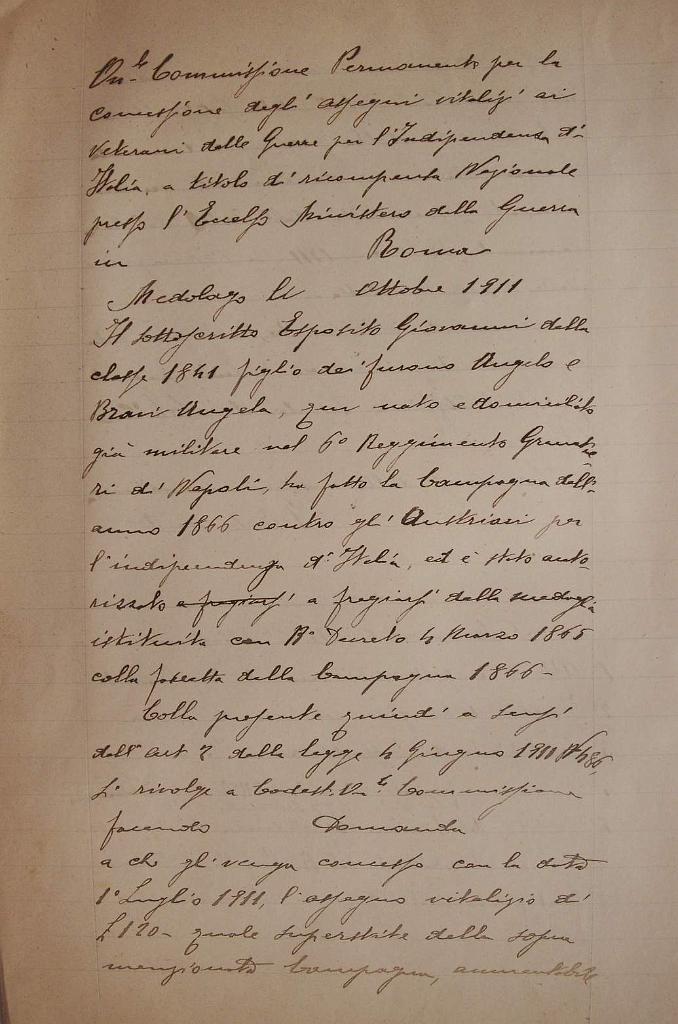 On.le Commissione Permanente per la
concessione degli assegni vitalizi ai
Veterani delle Guerre per l'Indipendenza d'
Italia, a titolo di ricompensa Nazionale
presso l'Eccelso Ministero della Guerra
in Roma
Medolago li Ottobre 1911
Il sottoscritto Esposito Giovanni della
classe 1841 figlio dei furono Angelo e
Bravi Angela, qui nato e domiciliato
già militare nel 6° Reggimento Granatie
ri di Napoli, ha fatto la Campagna dell'
anno 1866 contro gli Austriaci per
l'indipendenza d'Italia, ed è stato auto-
rizzato a fregiarsi a fregiarsi della medaglia
istituita con R° Decreto 4 Marzo 1865
colla fascetta della Campagna 1866-
Colla presente quindi a sensi
dell'art 2 della legge 4 Giugno 1911 N° 486,
si rivolge a Codest. On.le Commissione
facendo Domanda
a che gli venga concesso con la data
1° Luglio 1911, l'assegno vitalizio di
£ 120- quale superstite della sopra
menzionata Campagna, aumentabile